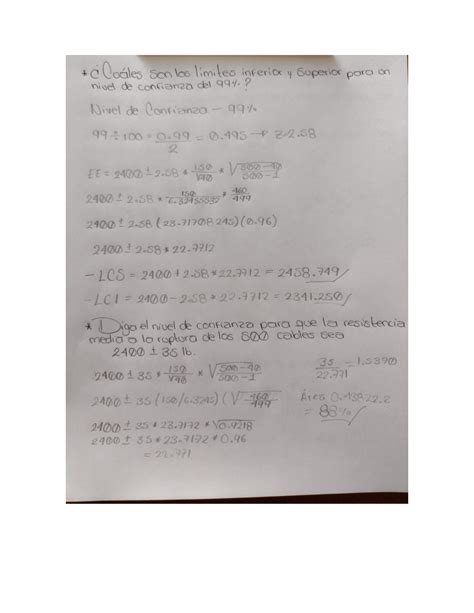 * ¿Cuáles son los límites inferior y superior para un
nivel de confianza del 99%?
Nivel de Confianza — 99%
99 ÷ 100 = 0.99 / 2 = 0.495 → Z=2.58
EE = 2400 ± 2.58 * 150/√40 * √500-40/500-1
2400 ± 2.58 * 150/6.32455532 * 460/499
2400 ± 2.58 (23.71708245)(0.96)
2400 ± 2.58 * 22.7712
- LCS = 2400 + 2.58 * 22.7712 = 2458.749
- LCI = 2400 - 2.58 * 22.7712 = 2341.250
* Diga el nivel de confianza para que la resistencia
media a la ruptura de los 500 cables sea
2400 ± 35 lb.
2400 ± 35 * 150/√40 * √500-40/500-1
2400 ± 35 (150/6.3245) (√460/499
2400 ± 35 * 23.7172 * √0.9218
2400 ± 35 * 23.7172 * 0.96
= 22.771
35/22.771 = 1.5370
Área
= 88%